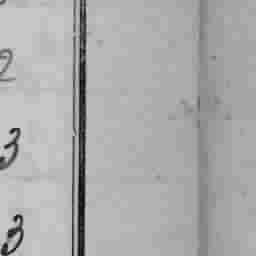 2
3
3